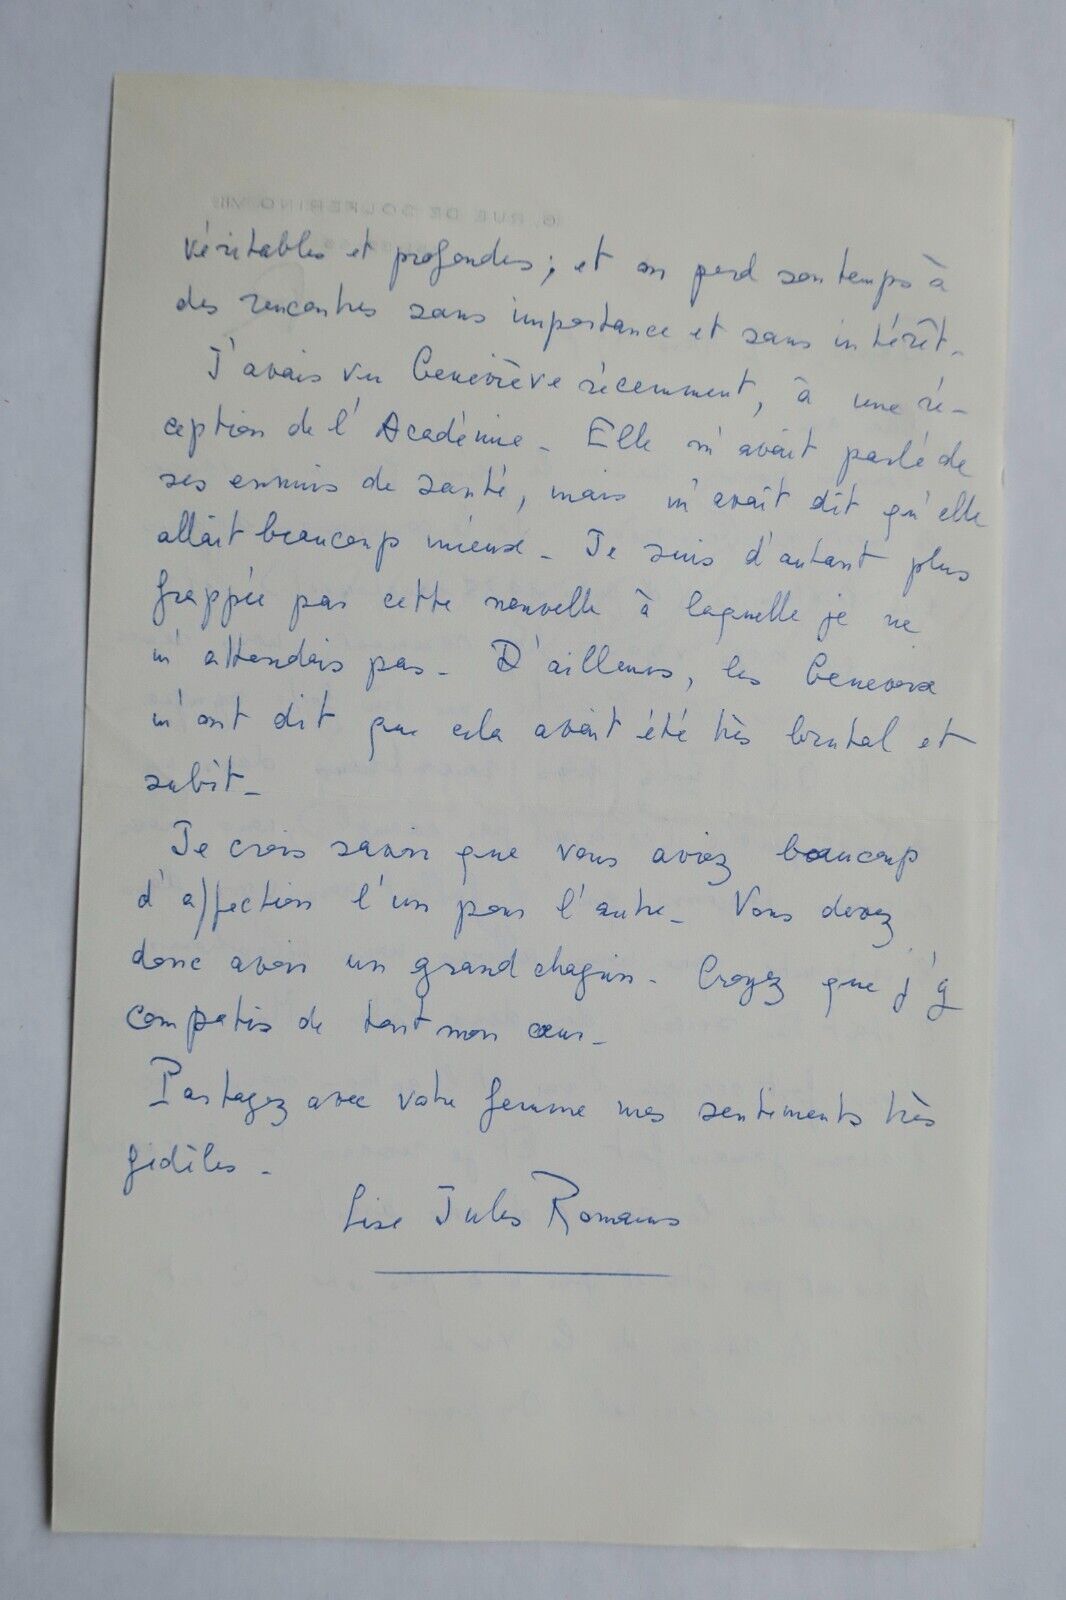 véritables et profondes ; et on perd son temps à
des rencontres sans importance et sans intérêt.
J'avais vu Geneviève récemment, à une ré-
ception de l'Académie - Elle m'avait parlé de
ses ennuis de santé, mais m'avait dit qu'elle
allait beaucoup mieux - Je suis d'autant plus
frappée par cette nouvelle à laquelle je ne
m'attendais pas - D'ailleurs, les Genevoix
m'ont dit que cela avait été très brutal et
subit -
Je crois savoir que vous aviez beaucoup
d'affection l'un pour l'autre - Vous devez
donc avoir un grand chagrin - Croyez que j'y
compatis de tout mon cœur -
Partagez avec votre femme mes sentiments très
fidèles -
Lise Jules Romains